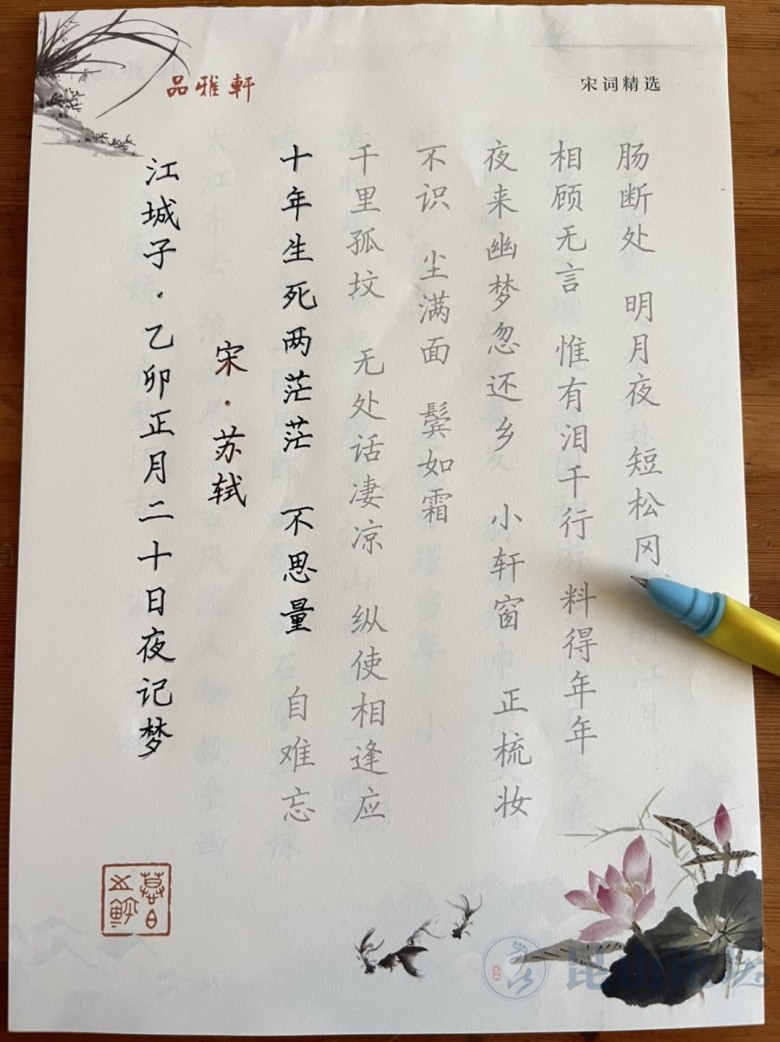 品雅軒
宋词精选
江城子·乙卯正月二十日夜记梦
宋·苏轼
十年生死两茫茫 不思量 自难忘
千里孤坟 无处话凄凉 纵使相逢应
不识 尘满面 鬓如霜
夜来幽梦忽还乡 小轩窗 正梳妆
相顾无言 惟有泪千行 料得年年
肠断处 明月夜 短松冈